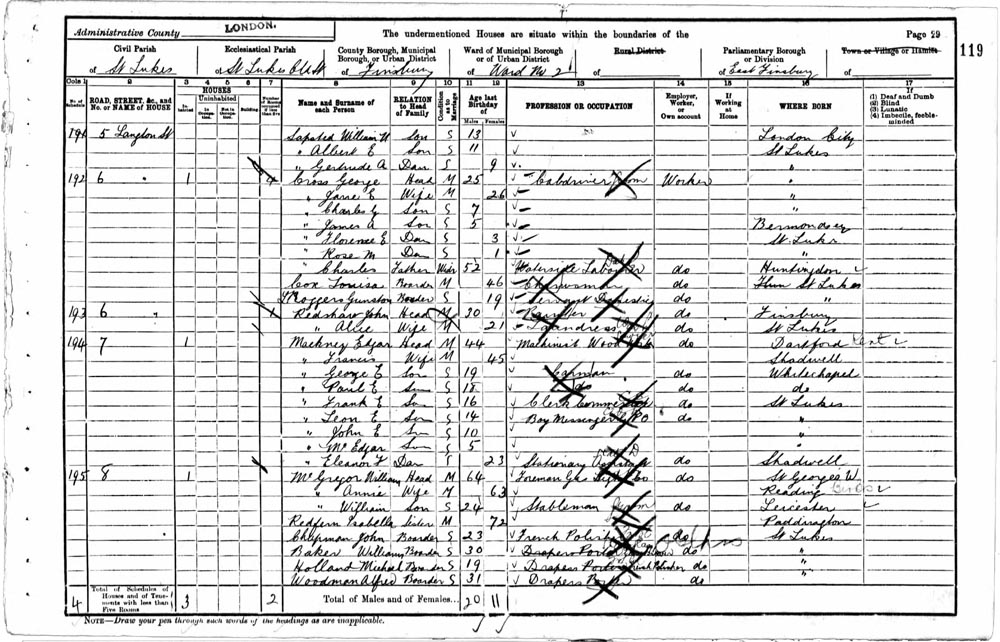 Administrative County LONDON.
The undermentioned Houses are situate within the boundaries of the
Page 29
119
Civil Parish
of St Lukes
Ecclesiastical Parish
of St Lukes Old St
County Borough, Municipal Borough, or Urban District
of Finsbury
Ward of Municipal Borough or of Urban District
of Ward No 2
Rural District
of
Parliamentary Borough or Division
of East Finsbury
Town or Village or Hamlet
of
Cols 1 2 3 4 5 6 7 8 9 10 11 12 13 14 15 16 17
No. of Schedule
ROAD, STREET, &c., and No. or NAME of HOUSE
HOUSES
Inhabited
Uninhabited
In Occupation
Not in Occupation
Building
Name and Surname of each Person
RELATION to Head of Family
Condition as to Marriage
Age last Birthday of
Males Females
PROFESSION OR OCCUPATION
Employer, Worker, or Own account
If Working at Home
WHERE BORN
If
(1) Deaf and Dumb
(2) Blind
(3) Lunatic
(4) Imbecile, feeble-minded
191 5 Langton St Sapsted William H Son S 13 London City
" Albert E Son S 11 St Lukes
" Gertrude A Daur S 9 "
192 6 " 1 4 Cross George Head M 25 Cabdriver Worker "
" Jane E Wife M 26 "
" Charles G Son S 7 "
" James A Son S 5 Bermondsey
" Florence E Dau S 3 St Lukes
" Rose M Dau S 1 "
" Charles Father Widr 52 Waterside Labourer do Huntingdon
Cox Louisa Boarder M 46 Charwoman do St Lukes
Boarder S 19 Servant Domestic do "
193 6 " Redshaw John Head M 30 do Finsbury
" Alice Wife M 21 Laundress do St Lukes
194 7 1 Mackney Edgar Head M 44 Machinist Wood do Dartford Kent
" Francis Wife M 45 Shadwell
" George E Son S 19 Carman do Whitechapel
" Paul E Son S 18 do do do
" Frank E Son S 16 Clerk Commercial do St Lukes
" Leon E Son S 14 Boy Messenger GPO do "
" John E Son S 10 "
" Mc Edgar Son S 5 "
" Eleanor F Dau S 23 Stationary Assistant do Shadwell
195 8 1 McGregor William Head M 64 Foreman Gas Light Co do St Georges W
" Annie Wife M 63 Reading Berks
" William Son S 24 Stableman do Leicester
Redfern Isabella Sister M 72 Paddington
Chapman John Boarder S 23 French Polisher do St Lukes
Baker William Boarder S 30 Drapers Porter do "
Holland Michael Boarder S 19 Drapers Porter French Polisher do "
Woodman Alfred Boarder S 31 Drapers Porter do "
4 Total of Schedules of Houses and of Tenements with less than Five Rooms 3 2 Total of Males and of Females... 20 11
NOTE—Draw your pen through such words of the headings as are inapplicable.